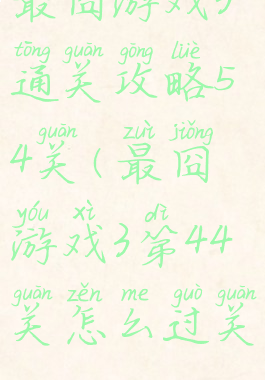 最囧游戏3
tōng guān gōng lüè
通关攻略5
guān zuì jiǒng
4关(最囧
yóu xì dì
游戏3第44
guān zěn me guò guān
关怎么过关